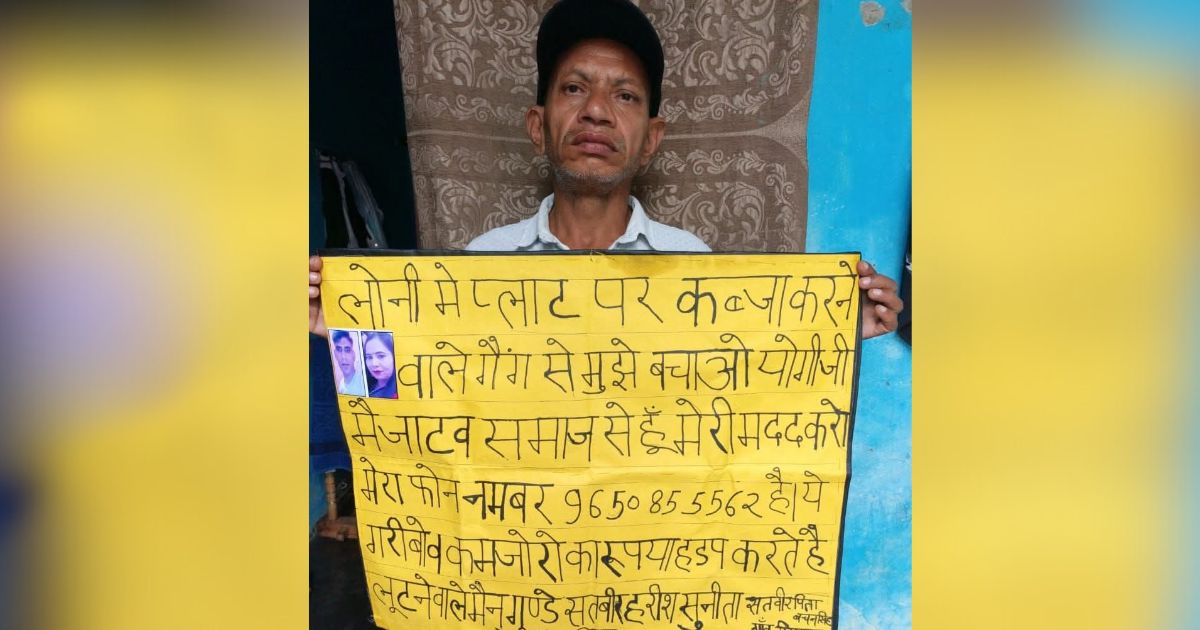 लोनी मे प्लाट पर कब्जा करने
वाले गैंग से मुझे बचाओ योगीजी
मै जाटव समाज से हूँ मेरी मदद करो
मेरा फोन नमबर 9650855562 है। ये
गरीबो व कमजोरो का रूपया हडप करते है
लूटने वाले मैन गुण्डे सतबीर हरीश सुनीता
सतवीर पिता
बचनसिंह
गाँव